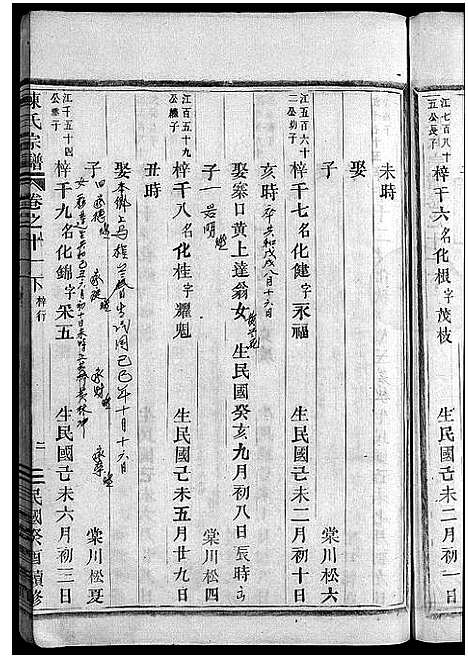 江七百八十
五公長子
梓千六名化根字茂枝 生民國己未二月初一日
未時
娶
子 棠川松六
江五百六十
二公幼子
梓千七名化健字永福 生民國己未二月初十日
亥時 卒共和戊戌八月十六日
娶寨口黃上達翁女 生民國癸亥九月初八日辰時
子一 棠川松四
江百五十九
公繼子
梓千八名化桂字耀魁 生民國己未五月廿九日
丑時
娶本鄉上馬 民國己巳年十月十六日
子四 棠川松夏
江千五十四
公零子
梓千九名化錦字采五 生民國己未六月初三日
陳氏宗譜 卷之十一下 梓行 二 民國癸酉續修